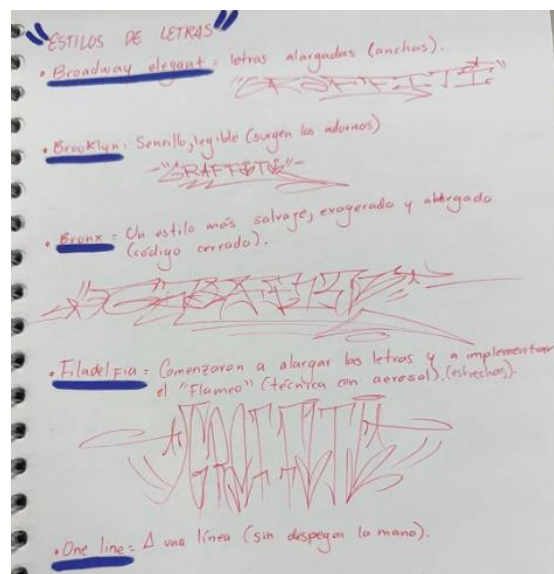 "ESTILOS DE LETRAS"
• Broadway elegant = letras alargadas (anchas).
"GRAFFITI"
• Brooklyn: Sencillo, legible (surgen los adornos)
-"GRAFFITI"-
• Bronx = Un estilo más salvaje, exagerado y alargado
(código cerrado).
• Filadelfia = Comenzaron a alargar las letras y a implementar
el "Flameo" (técnica con aerosol). (estrechas).
• One line = Δ una línea (sin despegar la mano).